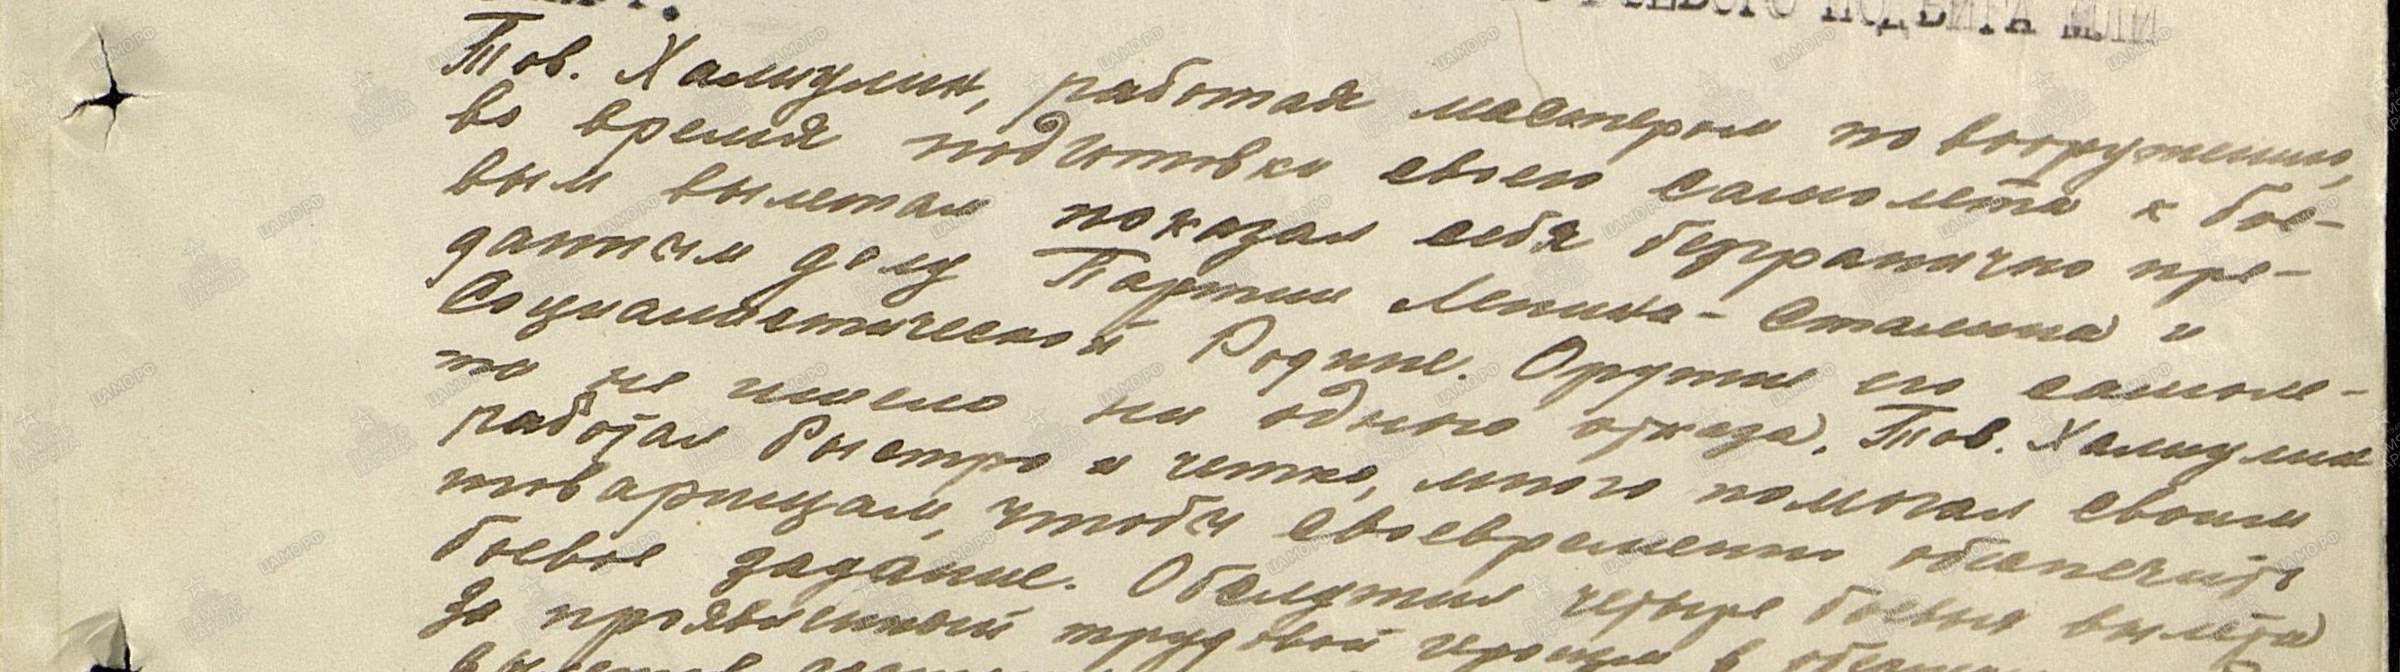 БОЕВОГО ПОДВИГА ИЛИ
Тов. Халиулин, работая мастером по вооружению,
во время подготовки своего самолета к бое-
вым вылетам показал себя безгранично пре-
данным делу Партии Ленина-Сталина и
Социалистической Родине. Оружие его самоле-
та не имело ни одного отказа. Тов. Халиулин
работал быстро и четко, много помогал своим
товарищам, чтобы своевременно обеспечить
боевое задание. Обслужил четыре боевых вылета
За проявленный трудовой героизм в